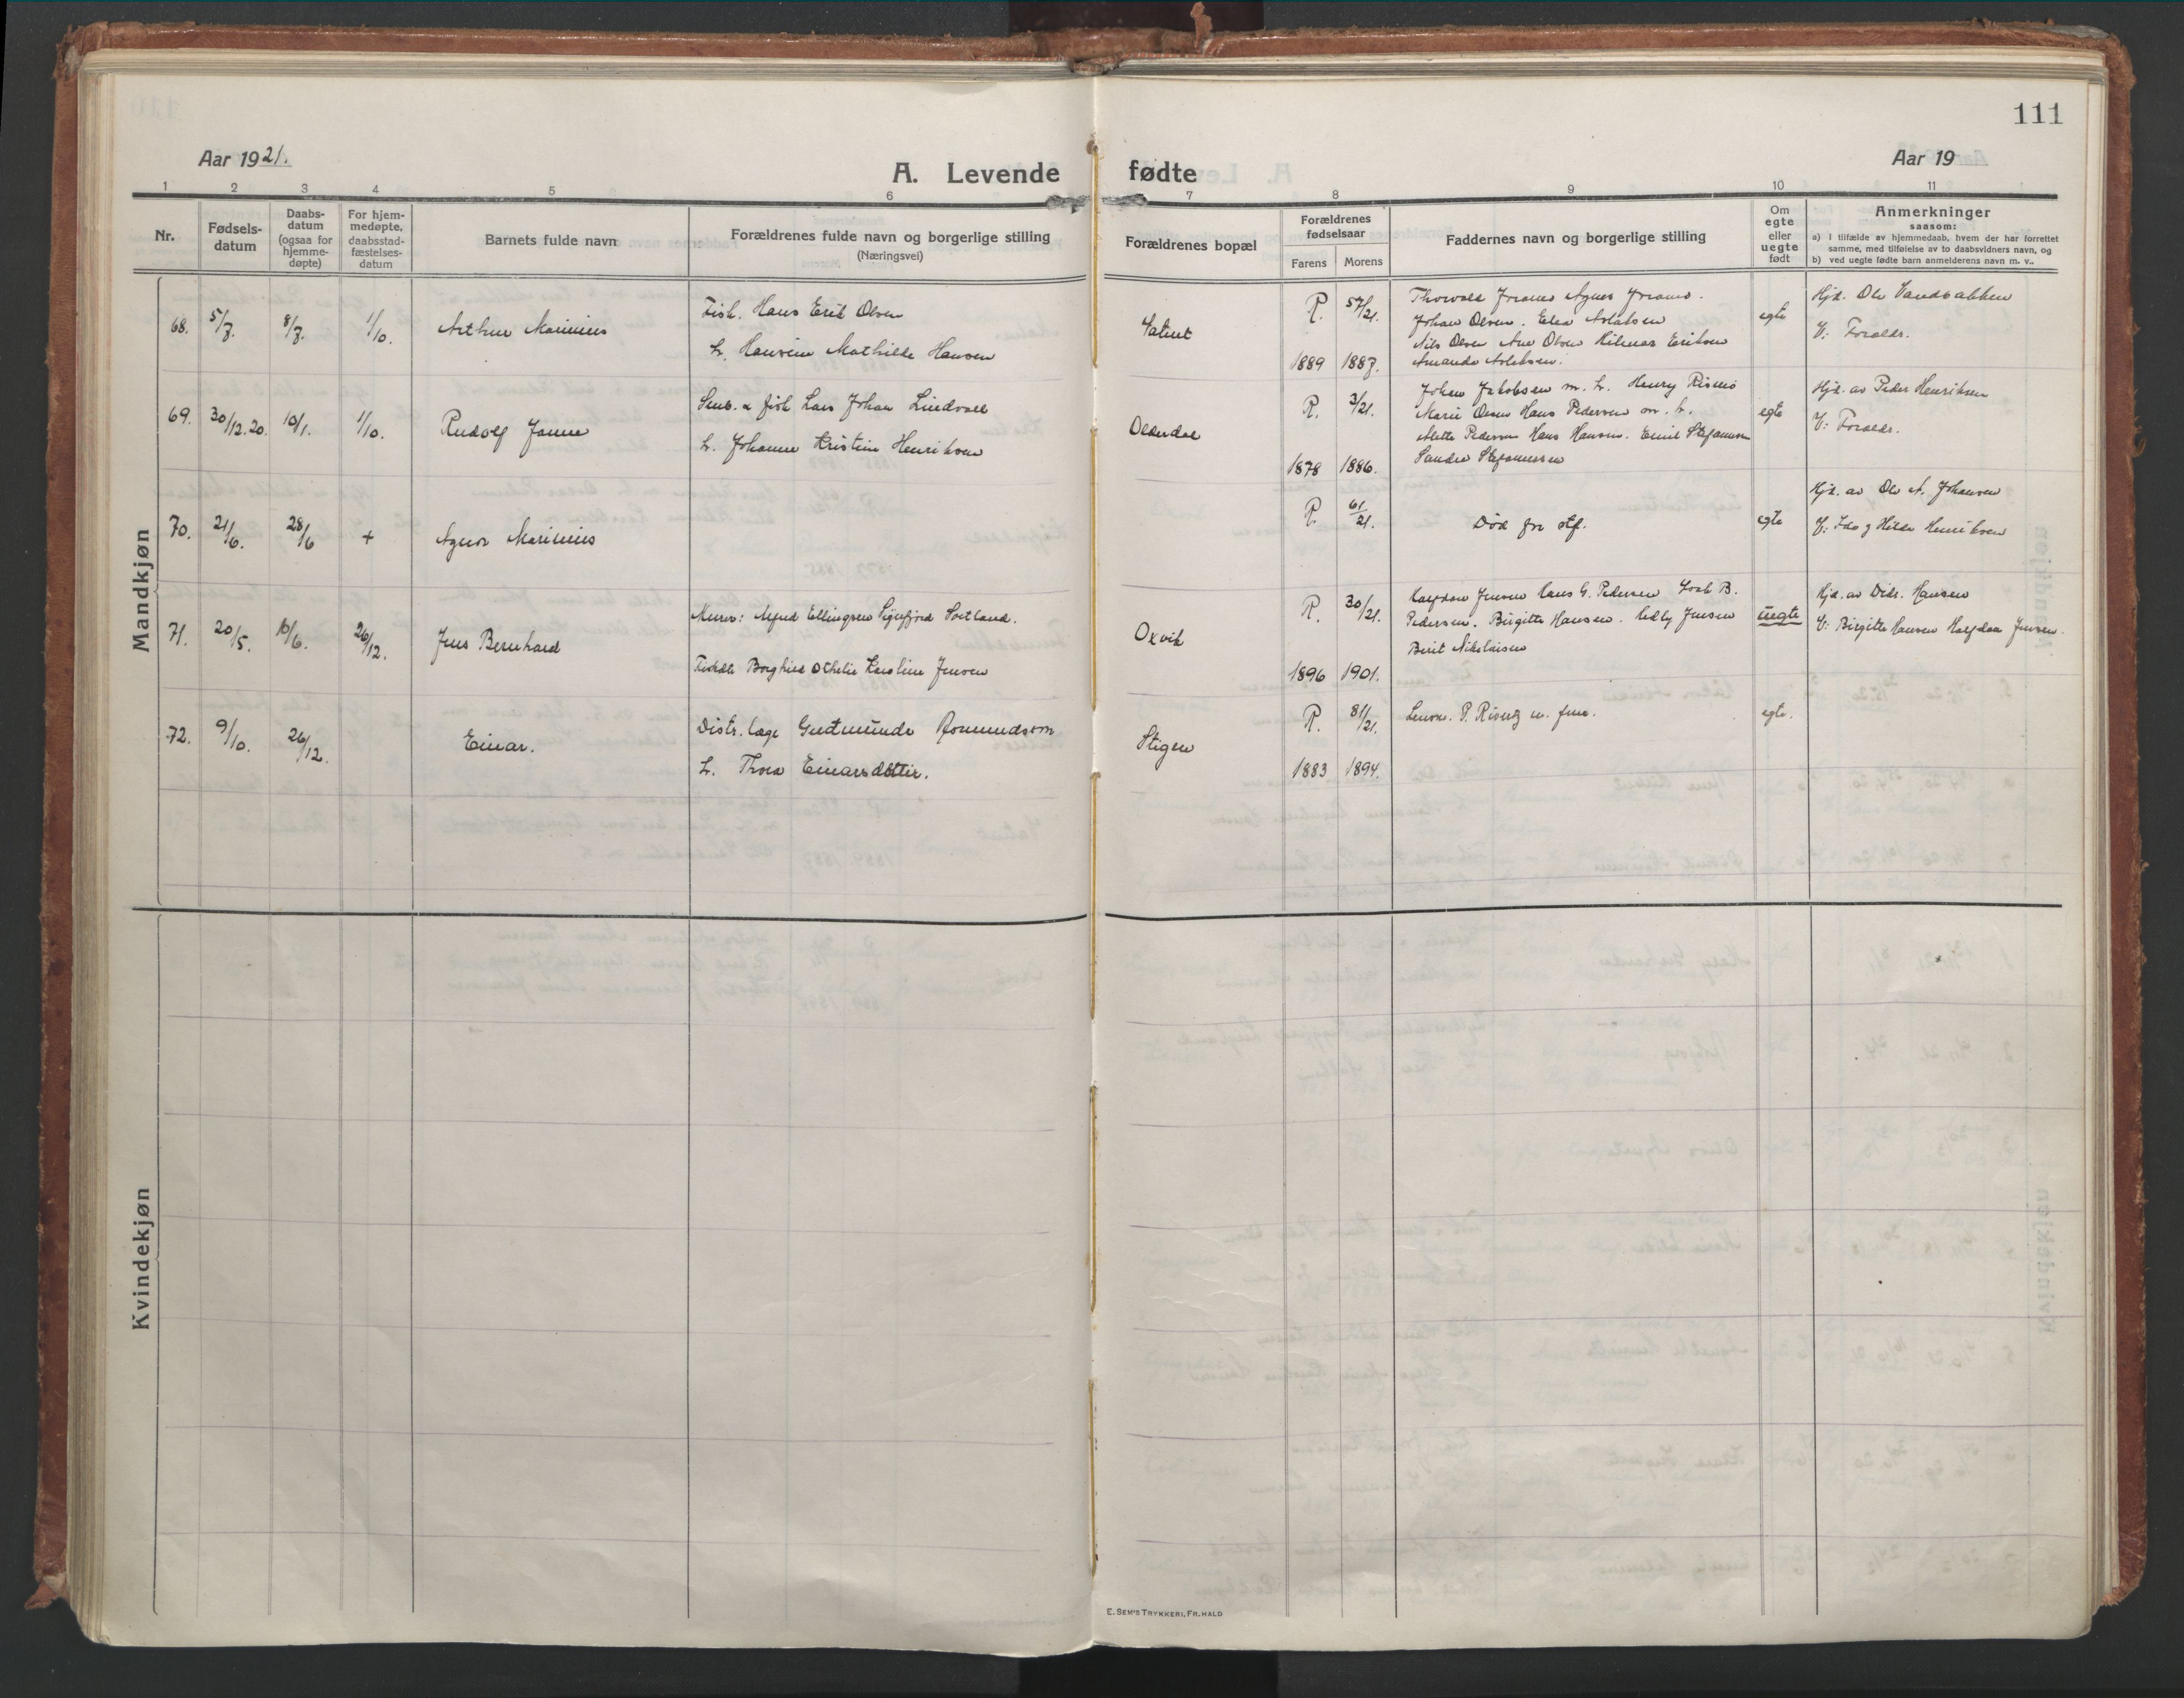 111
Aar 1921.
A. Levende fødte
Aar 19
1 2 3 4 5 6 7 8 9 10 11
Nr.
Fødsels-
datum
Daabs-
datum
(ogsaa for
hjemme-
døpte)
For hjem-
medøpte,
daabsstad-
fæstelses-
datum
Barnets fulde navn
Forældrenes fulde navn og borgerlige stilling
(Næringsvei)
Forældrenes bopæl
Forældrenes
fødselsaar
Farens Morens
Faddernes navn og borgerlige stilling
Om
egte
eller
uegte
født
Anmerkninger
saasom:
a) I tilfælde av hjemmedaab, hvem der har forrettet
samme, med tilføielse av to daabsvidners navn, og
b) ved uegte fødte barn anmelderens navn m. v..
Mandkjøn
68. 5/7. 8/7. 1/10. Arthur Marinius
Fisk. Hans Erik Olsen
h. Hansine Mathilde Hansen
R. 57/21.
1889 1887.
Johan Olsen.
Nils Olsen Ane Olsen Hilmar Eriksen
Amanda Aslaksen.
egte
Hjd. Ole Sandbakken
V: Foreldr.
69. 30/12.20. 10/1. 1/10. Rudolf Janne
Smb. & fisk Lars Johan Lindvall
h. Johanne Kristine Henriksen
Olderdal
R. 3/21.
1878 1886.
Johan Jakobsen m. h. Henry Rismo
Marie Olsen Hans Pedersen m. h.
Alette Pedersen Hans Hansen. Emil Stefanussen
Sandra Stefanussen
egte
Hjd. av Peder Henriksen
V: Foreldr.
70. 21/6. 28/6 + Agnor Marinius
R. 61/21.
Død før stf.
egte
Hjd. av Ole A. Johansen
V: Ida g Hilda Henriksen
71. 20/5. 10/6. 26/12. Jens Bernhard
Murer: Alfred Ellingsen Sigerfjord Sortland.
Borghild Othelie Karoline Jensen
Oxvik
R. 30/21.
1896 1901.
Halfdan Jensen Hans G. Pedersen B.
Pedersen. Birgitte Hansen. Hedly Jensen
Berit Nikolaisen
uegte
Hjd. av Didr. Hansen
V: Birgitte Hansen Halfdan Jensen.
72. 9/10. 26/12. Einar.
Distr. læge Gudmunde Asmundson
h. Thora Einarsdottir.
Stigen
R. 81/21.
1883 1894.
Lensm. P. Rivertz m. frue.
egte.
Kvindekjøn
E. SEM'S TRYKKERI, FR.HALD